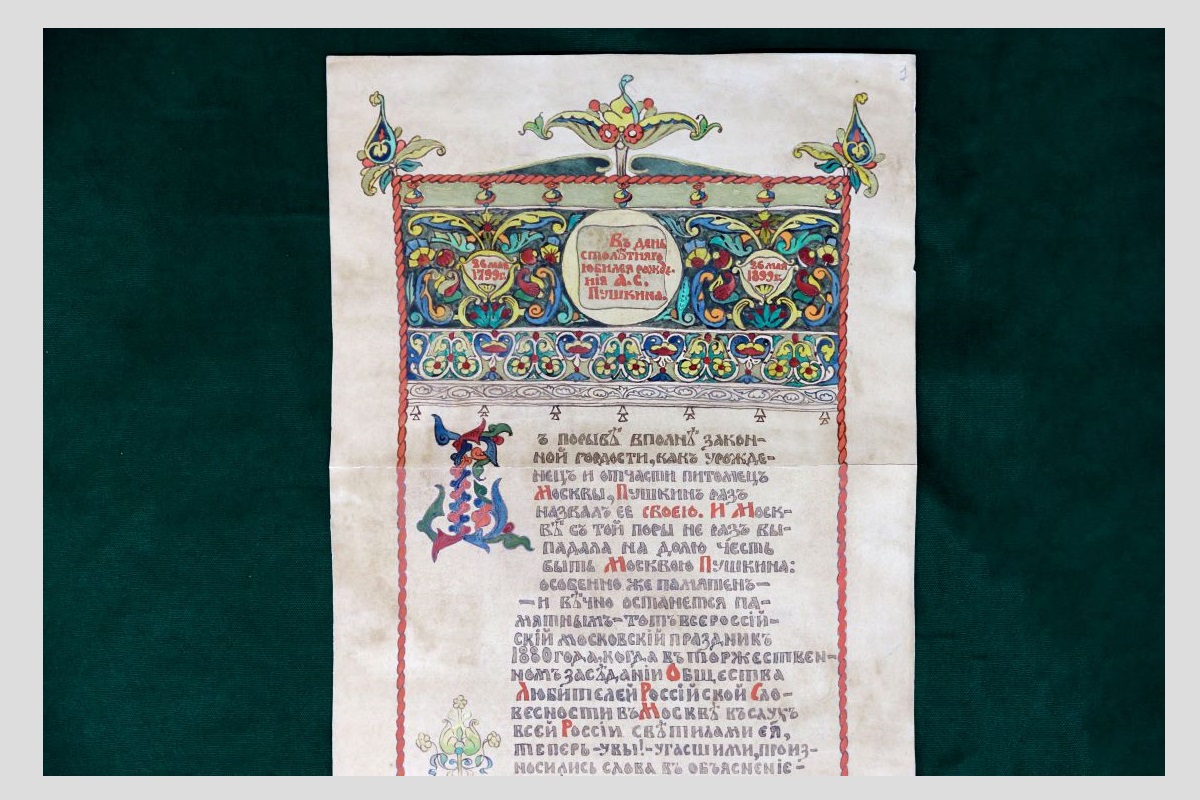 Въ день
столѣтняго
юбилея рожде-
нія А.С.
Пушкина.
26 мая
1799г.
26 мая
1899г.
Въ порывѣ вполнѣ закон-
ной гордости, какъ урожде-
нецъ и отчасти питомецъ
Москвы, Пушкинъ разъ
назвалъ ее своею. И Моск-
вѣ съ той поры не разъ вы-
падала на долю честь
быть Москвою Пушкина:
особенно же памятенъ—
—и вѣчно останется па-
мятнымъ-тотъ всероссій-
скій московскій праздникъ
1880 года, когда въ торжествен-
номъ засѣданіи Общества
Любителей Россійской Сло-
весности въ Москвѣ въ слухъ
всей Россіи свѣтилами ея,
теперь-увы!-угасшими, произ-
носились слова въ объясненіе-